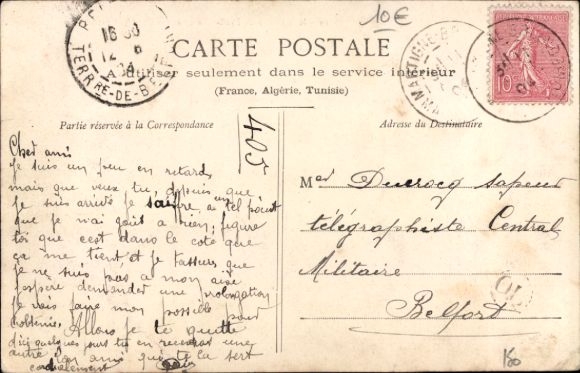 10€
CARTE POSTALE
A utiliser seulement dans le service intérieur
(France, Algérie, Tunisie)
Partie réservée à la Correspondance
Adresse du Destinataire
16 30
12 6
TERRRE-DE-BE
MARTIGNE-B
REPUBLIQUE FRANÇAISE
10
405
Cher ami
Je suis un peu en retard
mais que veux tu, depuis que
je suis arrivé je souffre a un tel point
que je n'ai goût a rien; figure
toi que c'est dans le coté gare
ça me tient, et je t'assure que
je ne suis pas a mon aise
J'espere demander une prolongation
Je vais faire mon possible pour
l'obtenir. Allons je te quitte
d'ici quelques jours tu en recevras une
autre Ton ami qui te la sert
cordialement
Mer Ducrocq sapeur
télégraphiste Central
Militaire
Belfort
10
180